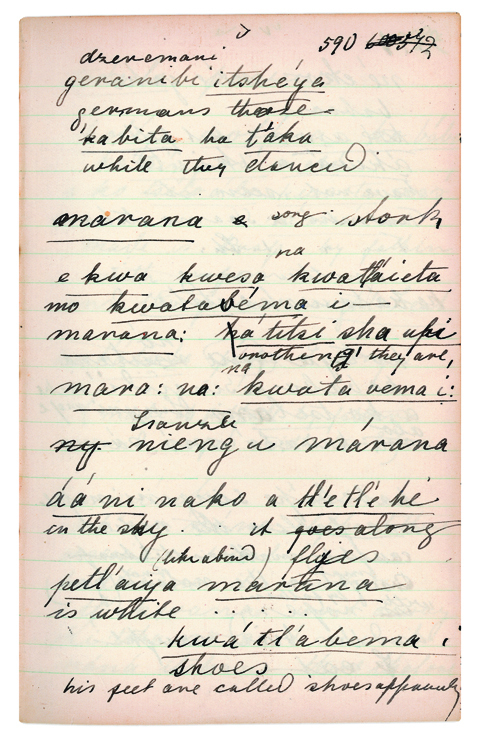 590
dzeremani
geranibi itshéya
germans those
kabita ha t'aka
while they danced
marana e song stork
na
e kwa kwesa kwat'aieta
mo kwatabéma i —
marana: ká titsi sha
they are,
na
mara: na: kwata vema i:
nieng i márana
áá ni nako a tl'etl'e hé
in the sky . . it goes along
(like a bird) flies
petl'aiya marana
is white . . . . .
kwá tl'abema i
shoes
his feet are called shoes apparently